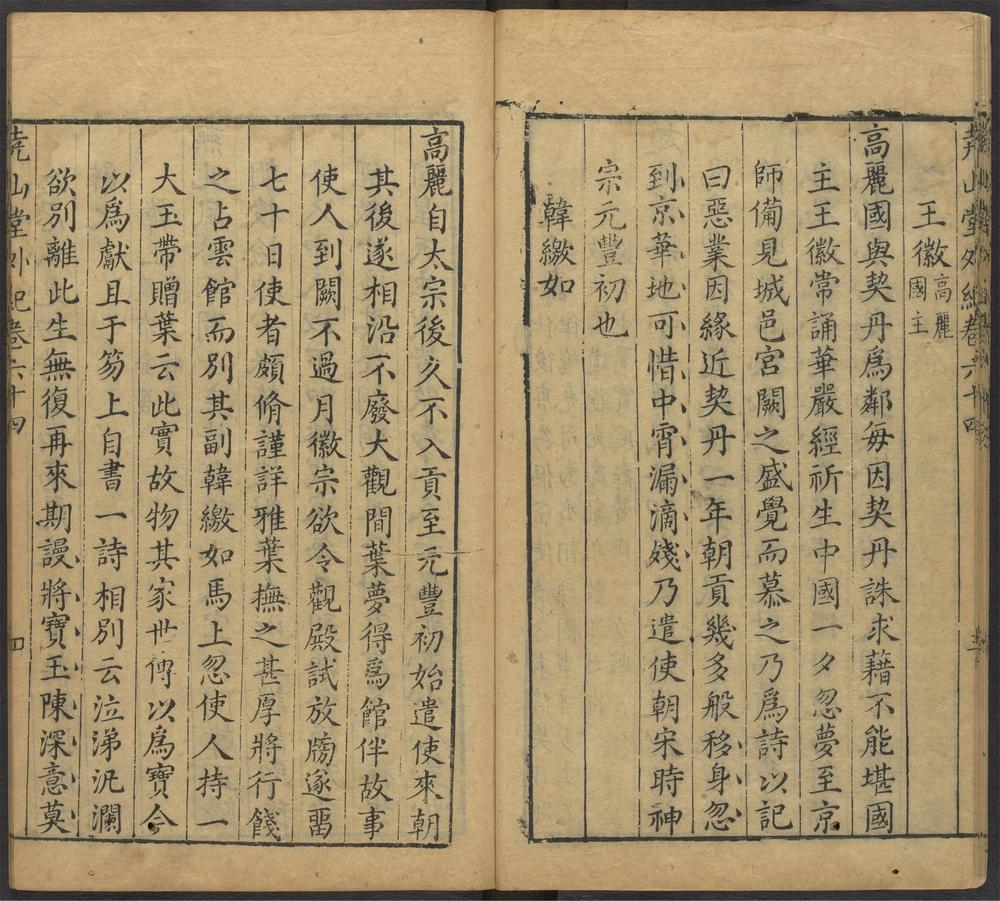 堯山堂外紀卷六十四
王徽高麗國主
高麗國與契丹爲鄰每因契丹誅求藉不能堪國
主王徽常誦華嚴經祈生中國一夕忽夢至京
師備見城邑宮闕之盛覺而慕之乃爲詩以記
曰惡業因緣近契丹一年朝貢幾多般移身忽
到京華地可惜中宵漏滴殘乃遣使朝宋時神
宗元豐初也
韓繳如
高麗自太宗後久不入貢至元豐初始遣使來朝
其後遂相沿不廢大觀間葉夢得爲館伴故事
使人到闕不過月徽宗欲令觀殿試放牓遂畱
七十日使者頗脩謹詳雅葉撫之甚厚將行餞
之占雲館而別其副韓繳如馬上忽使人持一
大玉帶贈葉云此實故物其家世傳以爲寶今
以爲獻且于笏上自書一詩相別云泣涕汍瀾
欲別離此生無復再來期謾將寶玉陳深意莫
堯山堂外紀卷六十四
四